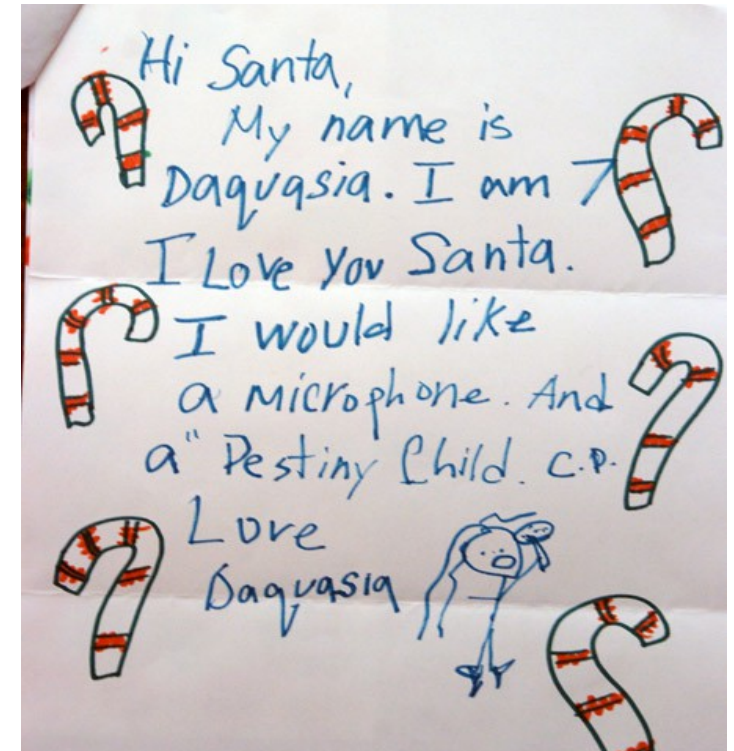 Hi Santa,
My name is
Daquasia. I am 7
I Love you Santa.
I would like
a microphone. And
a" Destiny Child. C.D.
Love
Daquasia